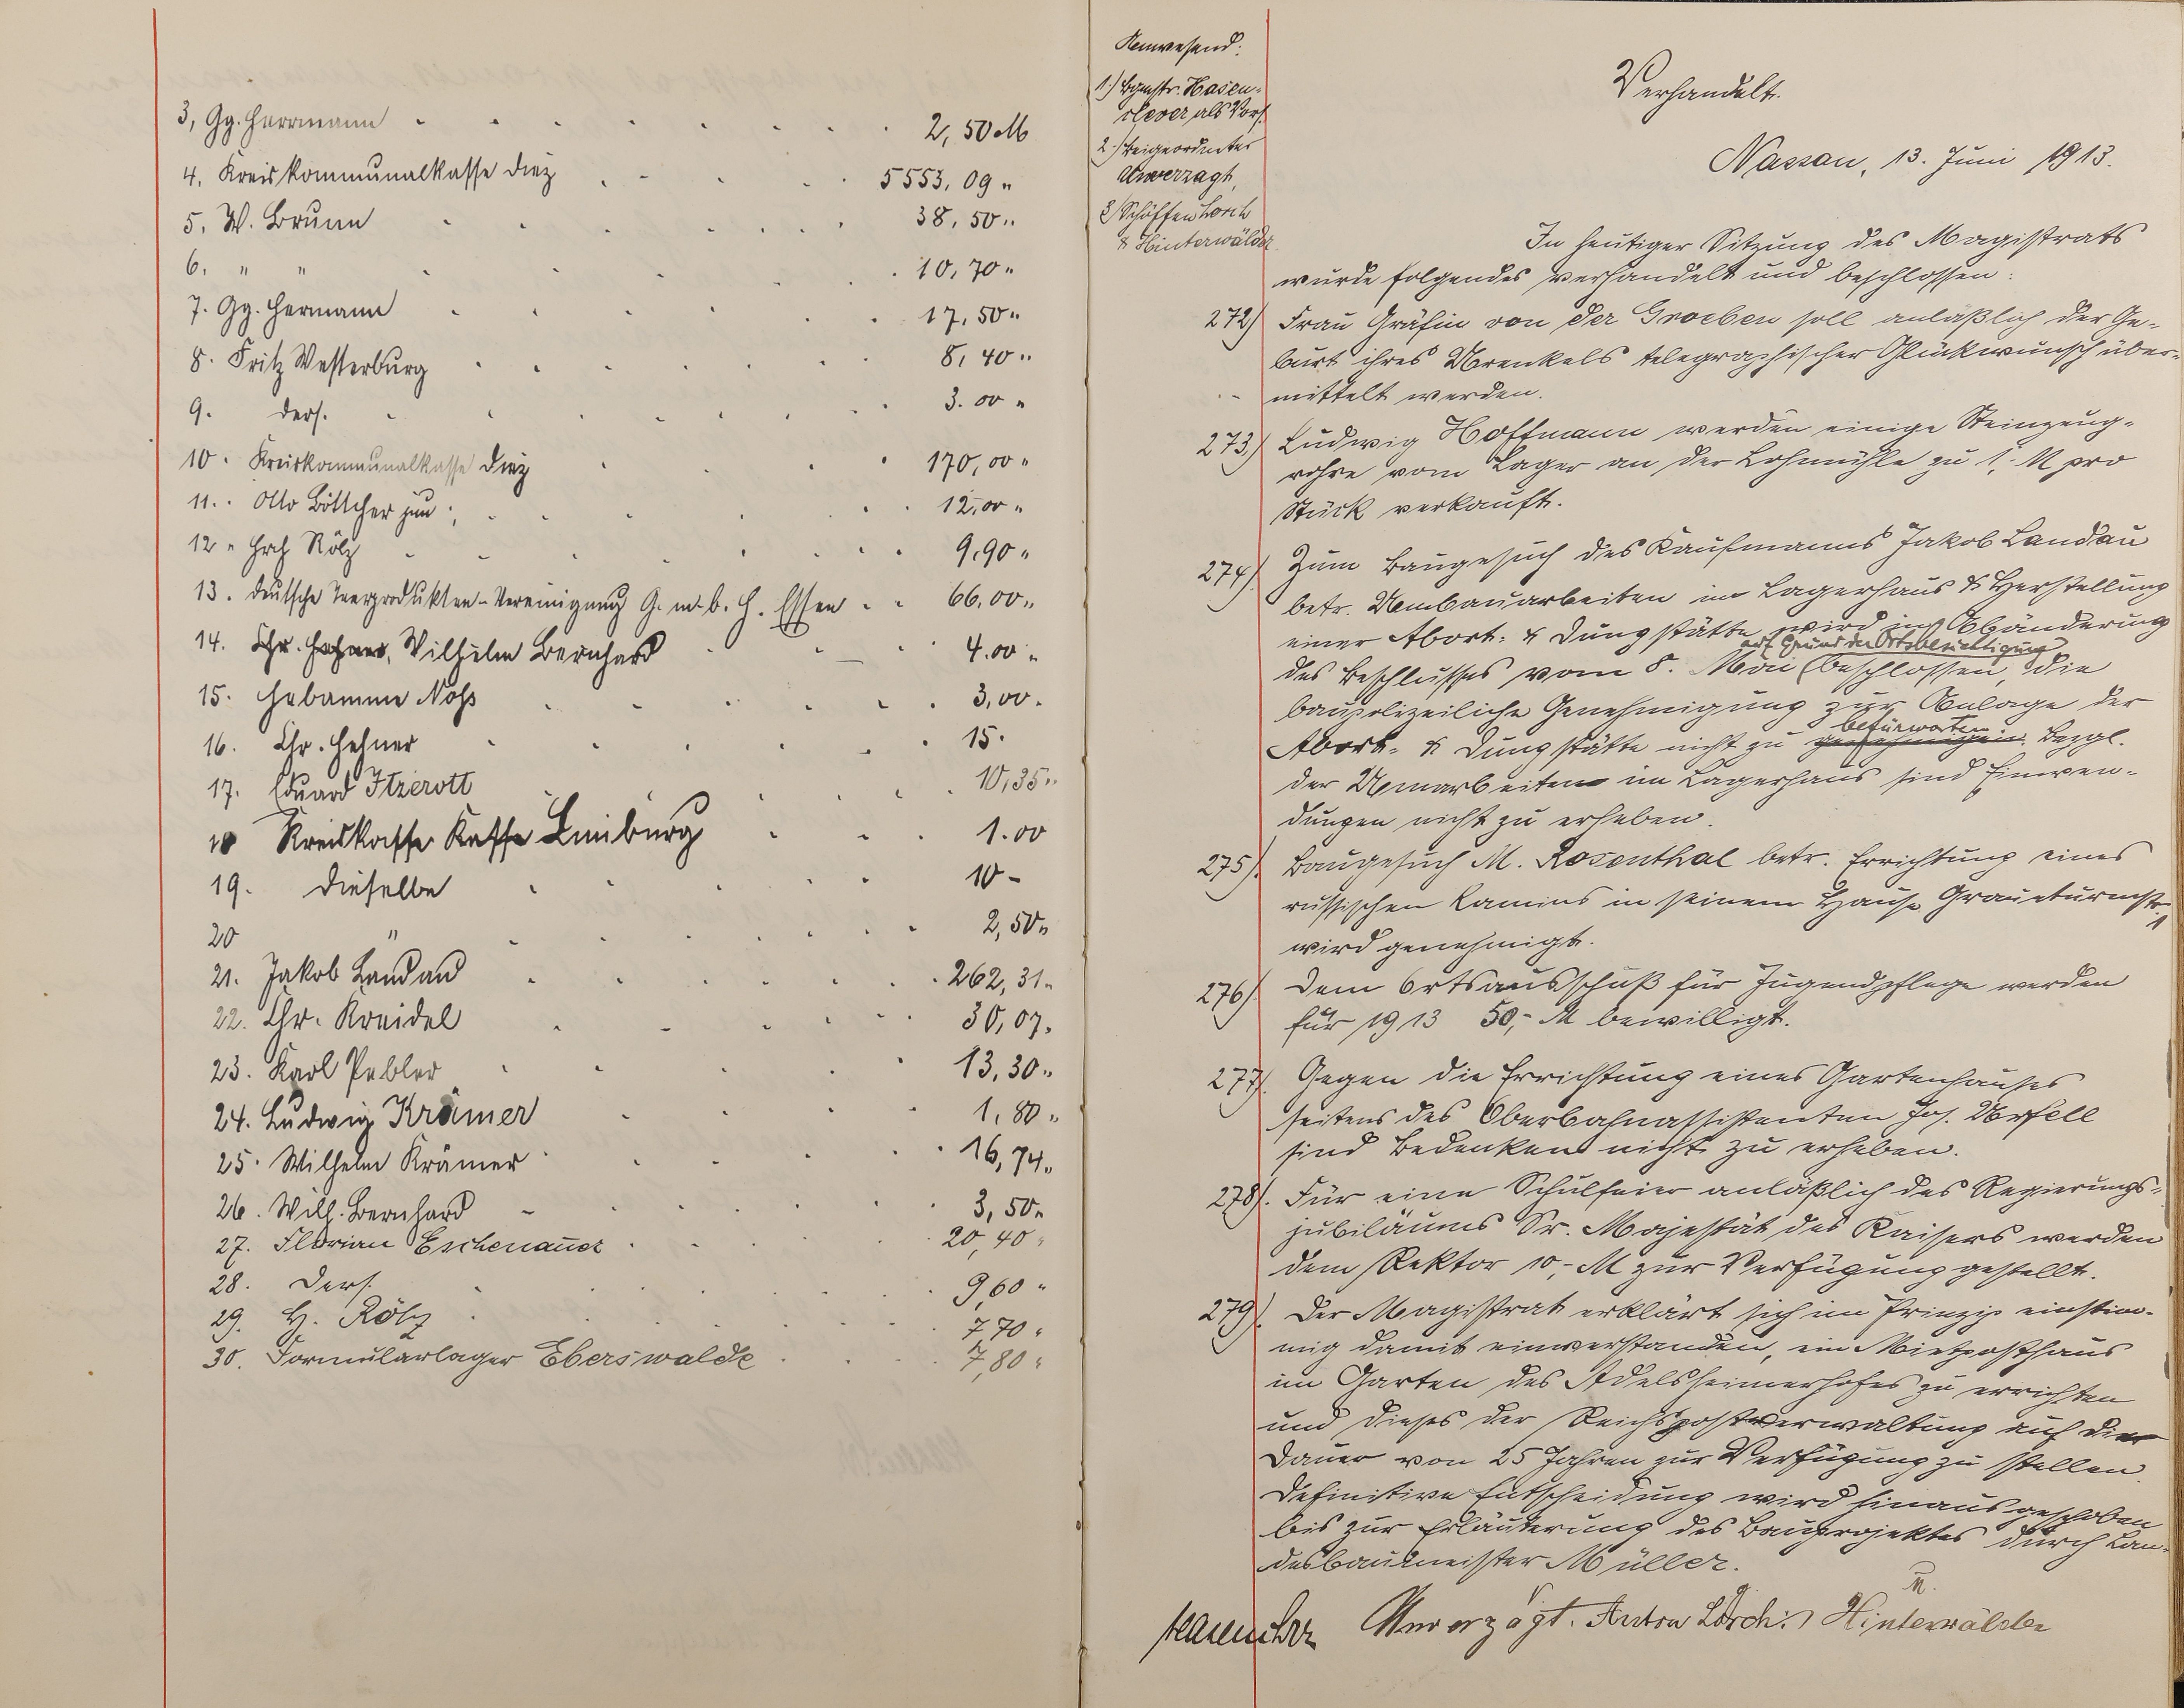 3, Gg. Herrmann . . . . . . . 2,50 M
4. Kreiskommunalkasse Diez . . . . 5553,09 "
5. W. Brunn . . . . . . 38,50 "
6. " " . . . . . 10,70 "
7. Gg. Hermann . . . . . . 17,50 "
8. Fritz Westerburg . . . . . . 8,40 "
9. ders. . . . . . . 3.00 "
10. Kreiskommunalkasse Diez . . . . 170,00 "
11. Otto Böttcher jun. . . . . . 12,00 "
12 " Hrch Rölz . . . . . . 9,90 "
13. Deutsche Teerprodukten-Vereinigung G. m. b. H. Essen . . 66,00 "
14. Wilhelm Bernhard . . . . 4.00 "
15. Hebamme Noss . . . . . 3,00 .
16. Chr. Hehner . . . . . 15.
17. Eduard Itzerott . . . . . 10,35 "
18 Kreiskasse Kasse Limburg . . . 1.00
19. Dieselbe . . . . 10 -
20 " . . . . . 2,50 "
21. Jakob Landau . . . . . 262,31 "
22. Chr. Kreidel . . . . . 30,07.
23. Karl Pebler . . . . . 13,30 "
24. Ludwig Krämer . . . . 1,80 "
25. Wilhelm Krämer . . . . . 16,74 "
26. Wilh. Bernhard . . . . . 3,50 "
27. Florian Eschenauer . . . . . 20,40 "
28. Ders. . . . . . 9,60 "
29. H. Rölz . . . . . 7,70 "
30. Formularlager Eberswalde . . . . 7,80 "
Anwesend:
1.) Bgmstr. Hasen-
clever als Vors.
2.) Beigeordneter
Unverzagt,
3) Schöffen Lorch
& Hinterwälder
Verhandelt.
Nassau, 13. Juni 1913.
In heutiger Sitzung des Magistrats
wurde folgendes verhandelt und beschlossen:
272) Frau Gräfin von der Groeben soll anläßlich der Ge-
burt ihres Urenkels telegraphischer Glückwunsch über-
mittelt werden.
273.) Ludwig Hoffmann werden einige Steinzeug-
rohre vom Lager an der Lohmühle zu 1,- M pro
Stück verkauft.
274) Zum Baugesuch des Kaufmanns Jakob Landau
betr. Umbauarbeiten im Lagerhaus & Herstellung
einer Abort- & Dungstätte wird in Abänderung
auf Grund der Ortsbesichtigung
des Beschlusses vom 8. Mai beschlossen, die
baupolizeiliche Genehmigung zur Anlage der
befürworten
Abort- & Dungstätte nicht zu genehmigen. Bezgl.
der Umarbeiten im Lagerhaus sind Einwen-
dungen nicht zu erheben.
275). Baugesuch M. Rosenthal betr. Errichtung eines
russischen Kamins in seinem Hause Graueturmstr.
wird genehmigt.
276). Dem Ortsausschuß für Jugendpflege werden
für 1913 50,- M bewilligt.
277). Gegen die Errichtung eines Gartenhauses
seitens des Oberbahnassistenten Jos. Urfell
sind Bedenken nicht zu erheben.
278). Für eine Schulfeier anläßlich des Regierungs-
jubiläums Sr. Majestät des Kaisers werden
dem Rektor 10,- M zur Verfügung gestellt.
279). Der Magistrat erklärt sich im Prinzip einstim-
mig damit einverstanden, ein Mietposthaus
im Garten des Adelsheimerhofes zu errichten
und dieses der Reichspostverwaltung auf die
Dauer von 25 Jahren zur Verfügung zu stellen.
Definitive Entscheidung wird hinausgeschoben
bis zur Erläuterung des Bauprojektes durch Lan-
desbaumeister Müller.
Hasenclever Unverzagt. Anton Lorch. Hinterwälder